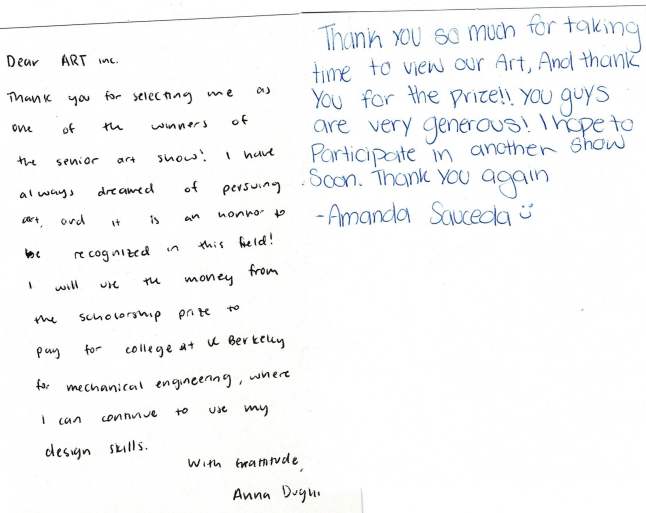 Dear ART inc.
Thank you for selecting me as
one of the winners of
the senior art show! I have
always dreamed of persuing
art, and it is an honnor to
be recognized in this field!
I will use the money from
the scholorship prize to
pay for college at UC Berkeley
for mechanical engineering, where
I can continue to use my
design skills.
With Gratitude,
Anna
Thank you so much for taking
time to view our Art, And thank
You for the prize!! you guys
are very generous! I hope to
Participate in another show
Soon. Thank you again
-Amanda Sauceda